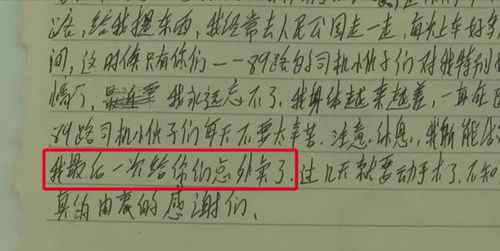 语,给我提东西,我经常去人民公园走一走,每次上车好多
间,这时候只有你们——89路的司机小伙子们对我特别
我永远忘不了,我身体越来越差,一直在
89路司机小伙子们每天不要太辛苦.注意休息,我所能
我最后一次给你们点外卖了.过几天就要动手术了.不知
真的由衷的感谢们、